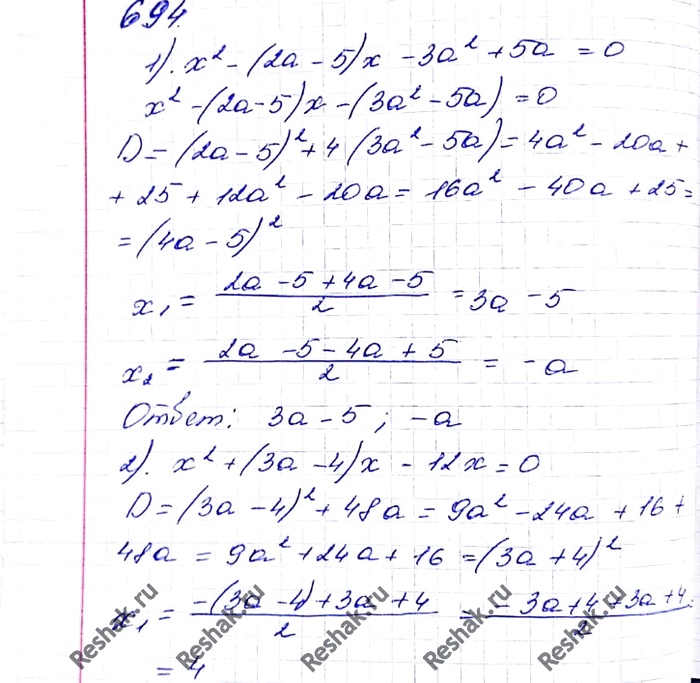 694.
1). x² - (2a - 5)x - 3a² + 5a = 0
x² - (2a - 5)x - (3a² - 5a) = 0
D = (2a - 5)² + 4 (3a² - 5a) = 4a² - 20a +
+ 25 + 12a² - 20a = 16a² - 40a + 25 =
= (4a - 5)²
x₁ = (2a - 5 + 4a - 5)/2 = 3a - 5
x₂ = (2a - 5 - 4a + 5)/2 = -a
Ответ: 3a - 5; -a
2). x² + (3a - 4)x - 12x = 0
D = (3a - 4)² + 48a = 9a² - 24a + 16 +
48a = 9a² + 24a + 16 = (3a + 4)²
x₁ = (-(3a - 4) + 3a + 4)/2 = (-3a + 4 + 3a + 4)/2
= 4
Reshak.ru
Reshak.ru
Reshak.ru
Reshak.ru
Reshak.ru